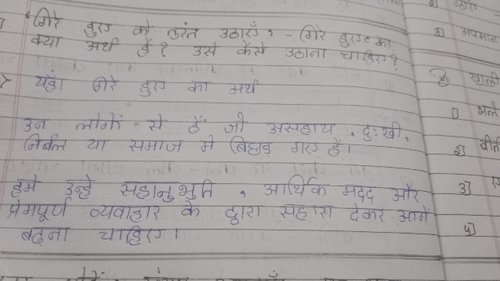 गिरे हुए को तुरंत उठाएँ, - गिरे हुए का
क्या अर्थ है? उसे कैसे उठाना चाहिए?
यहाँ गिरे हुए का अर्थ
उन लोगों से है जो असहाय, दुःखी,
निर्बल या समाज मे बिछड़ गए है।
हमे उन्हे सहानुभुति, आर्थिक मदद और
प्रेमपूर्ण व्यवाहार के द्वारा सहारा देकर आगे
बढना चाहिए।
2) अपमान
1) भले
2)
3)
4)